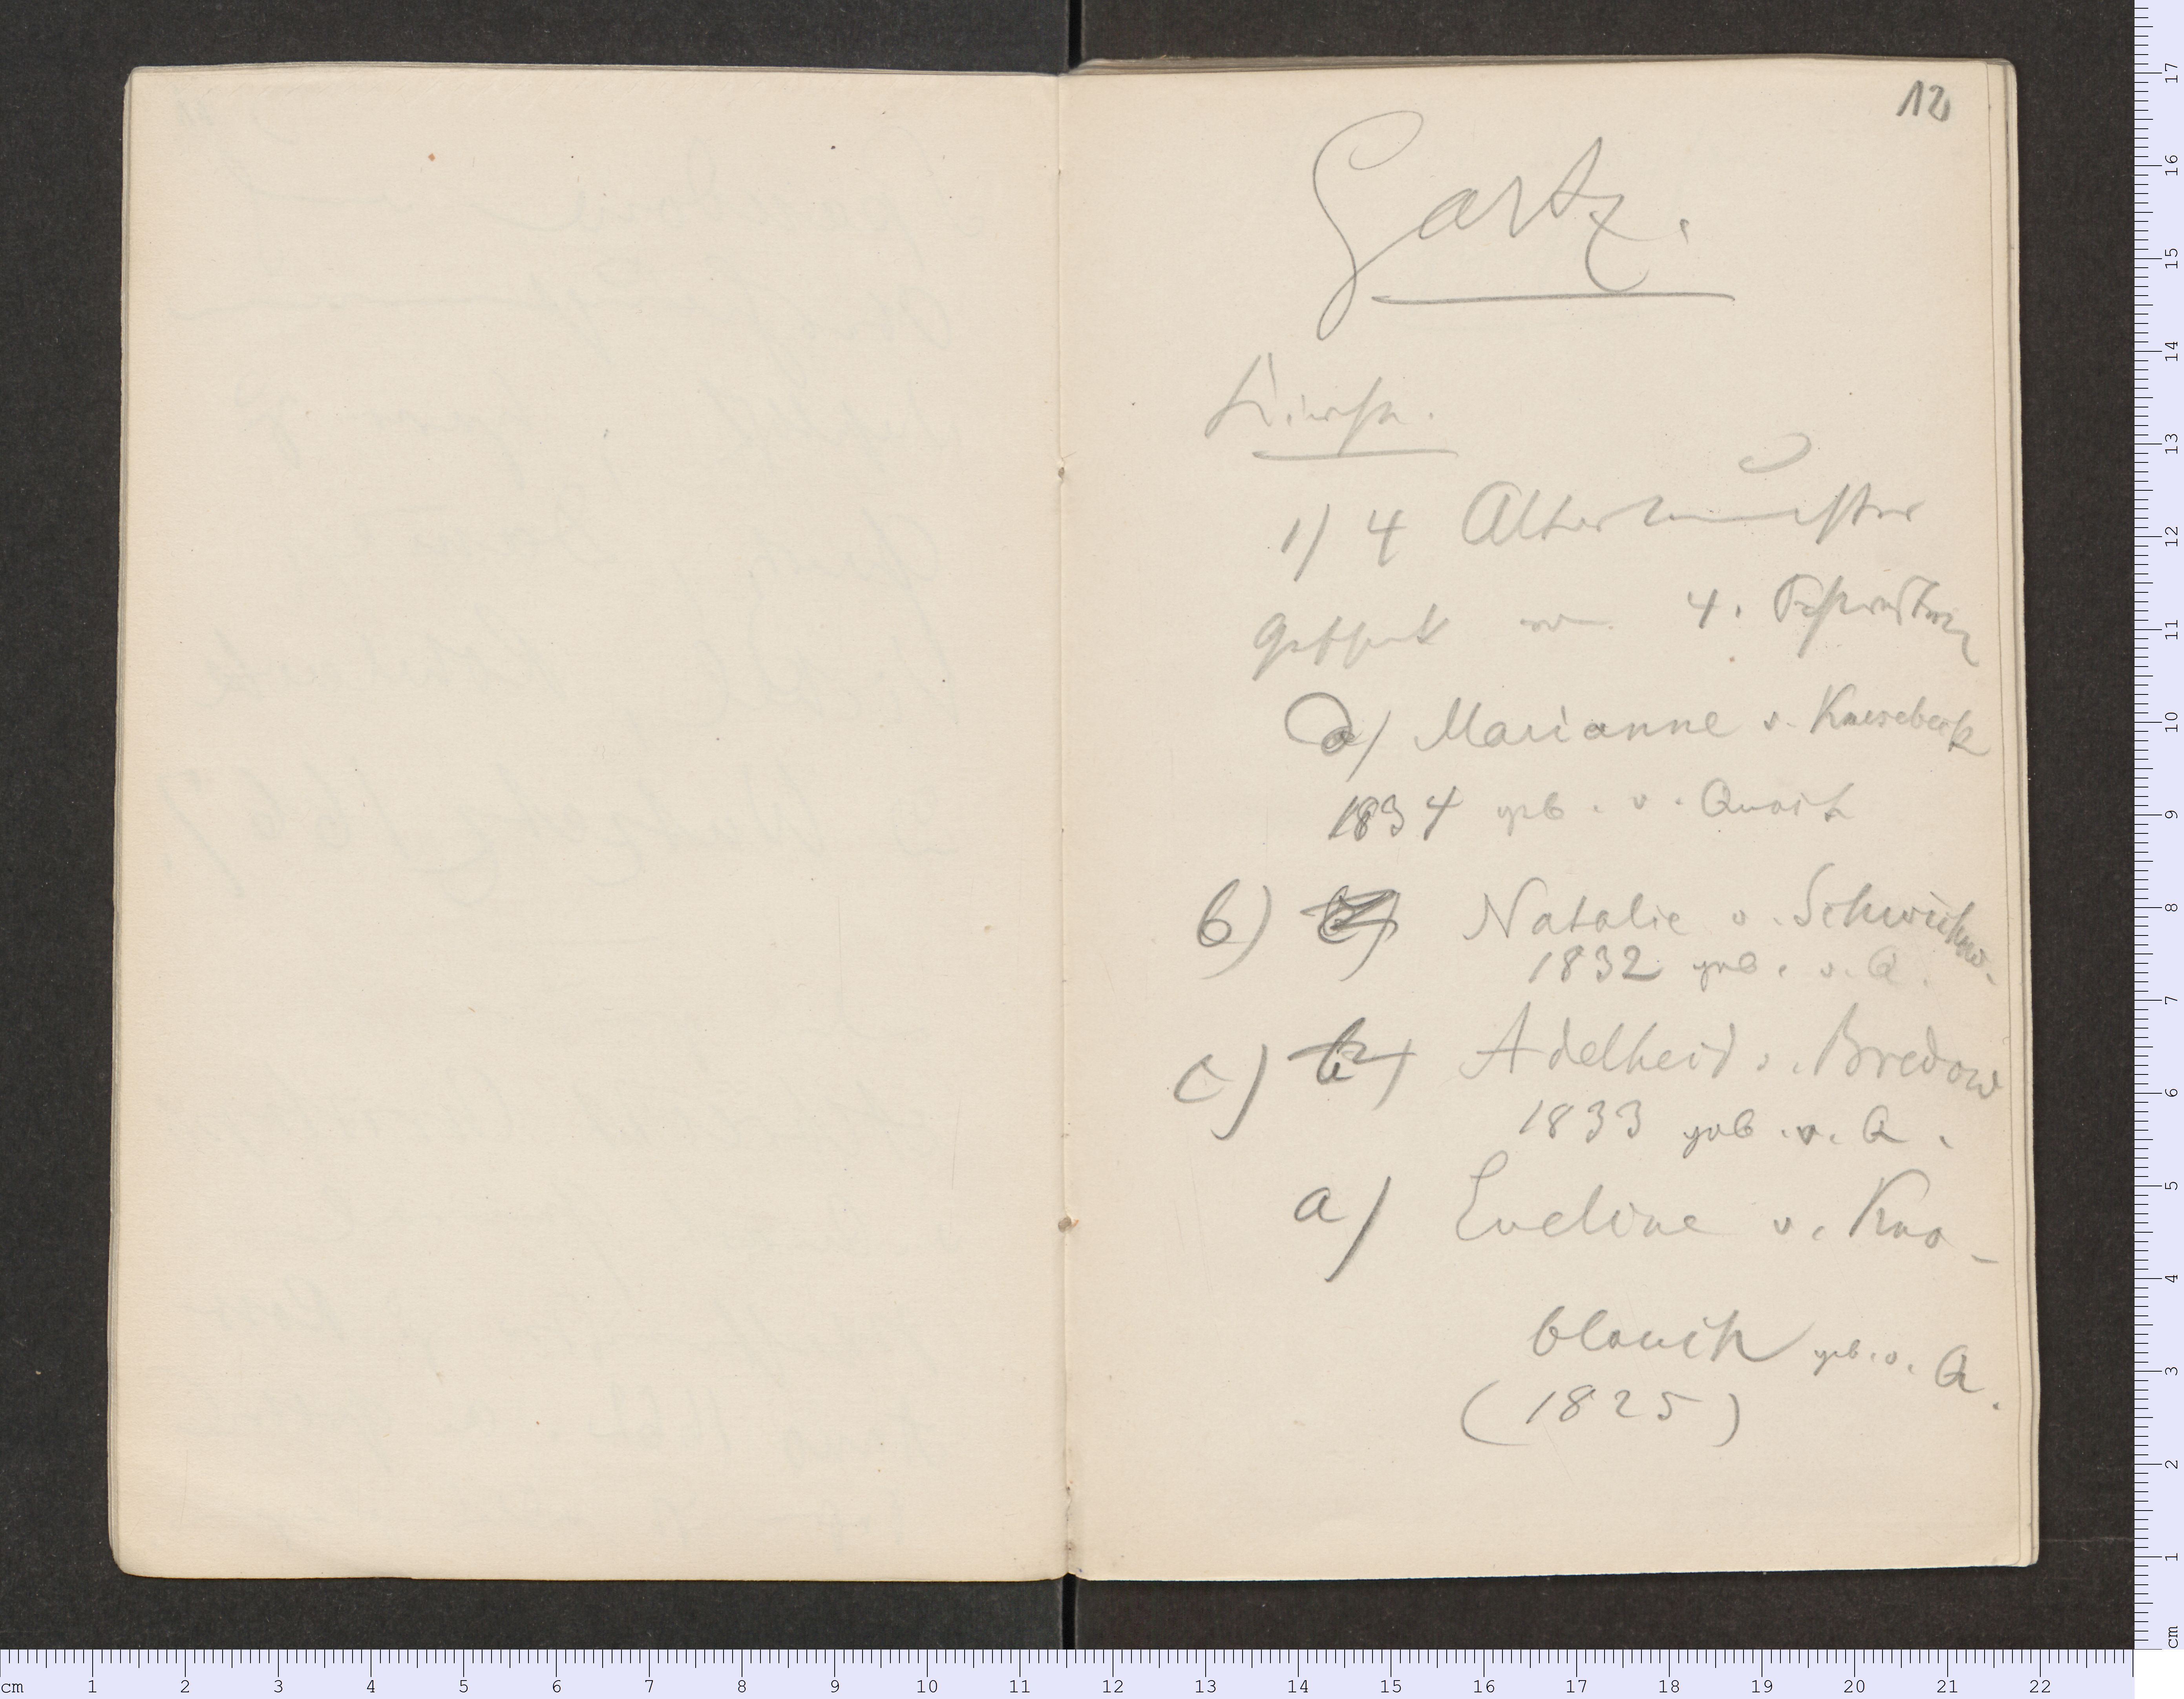 12
Gartz.
Kirche.
1) 4 Altarleuchter
Geschenk von 4. Schwestern
d) Marianne v. Knesebeck
1834 geb. v. Quast
b) Natalie v. Schwichow.
1832 geb. v. Q.
c) Adelheid v. Bredow
1833 geb. v. Q.
a) Eveline v. Kno-
blauch geb. v. Q.
(1825)